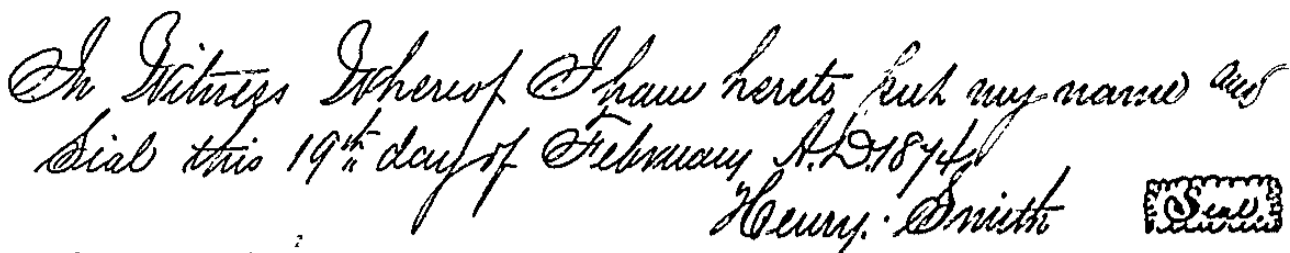 In Witness Whereof I have hereto put my name and
Seal this 19th day of February A.D. 1874
Henry. Smith Seal